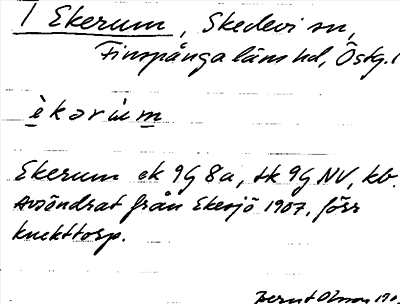 1 Ekerum, Skedevi sn,
Finspånga läns hd, Östg.
èkərùm
Ekerum ek 9G 8a, tk 9G NV, kb.
Avsöndrat från Ekesjö 1907, förr
knekttorp.
Bernt Olsson